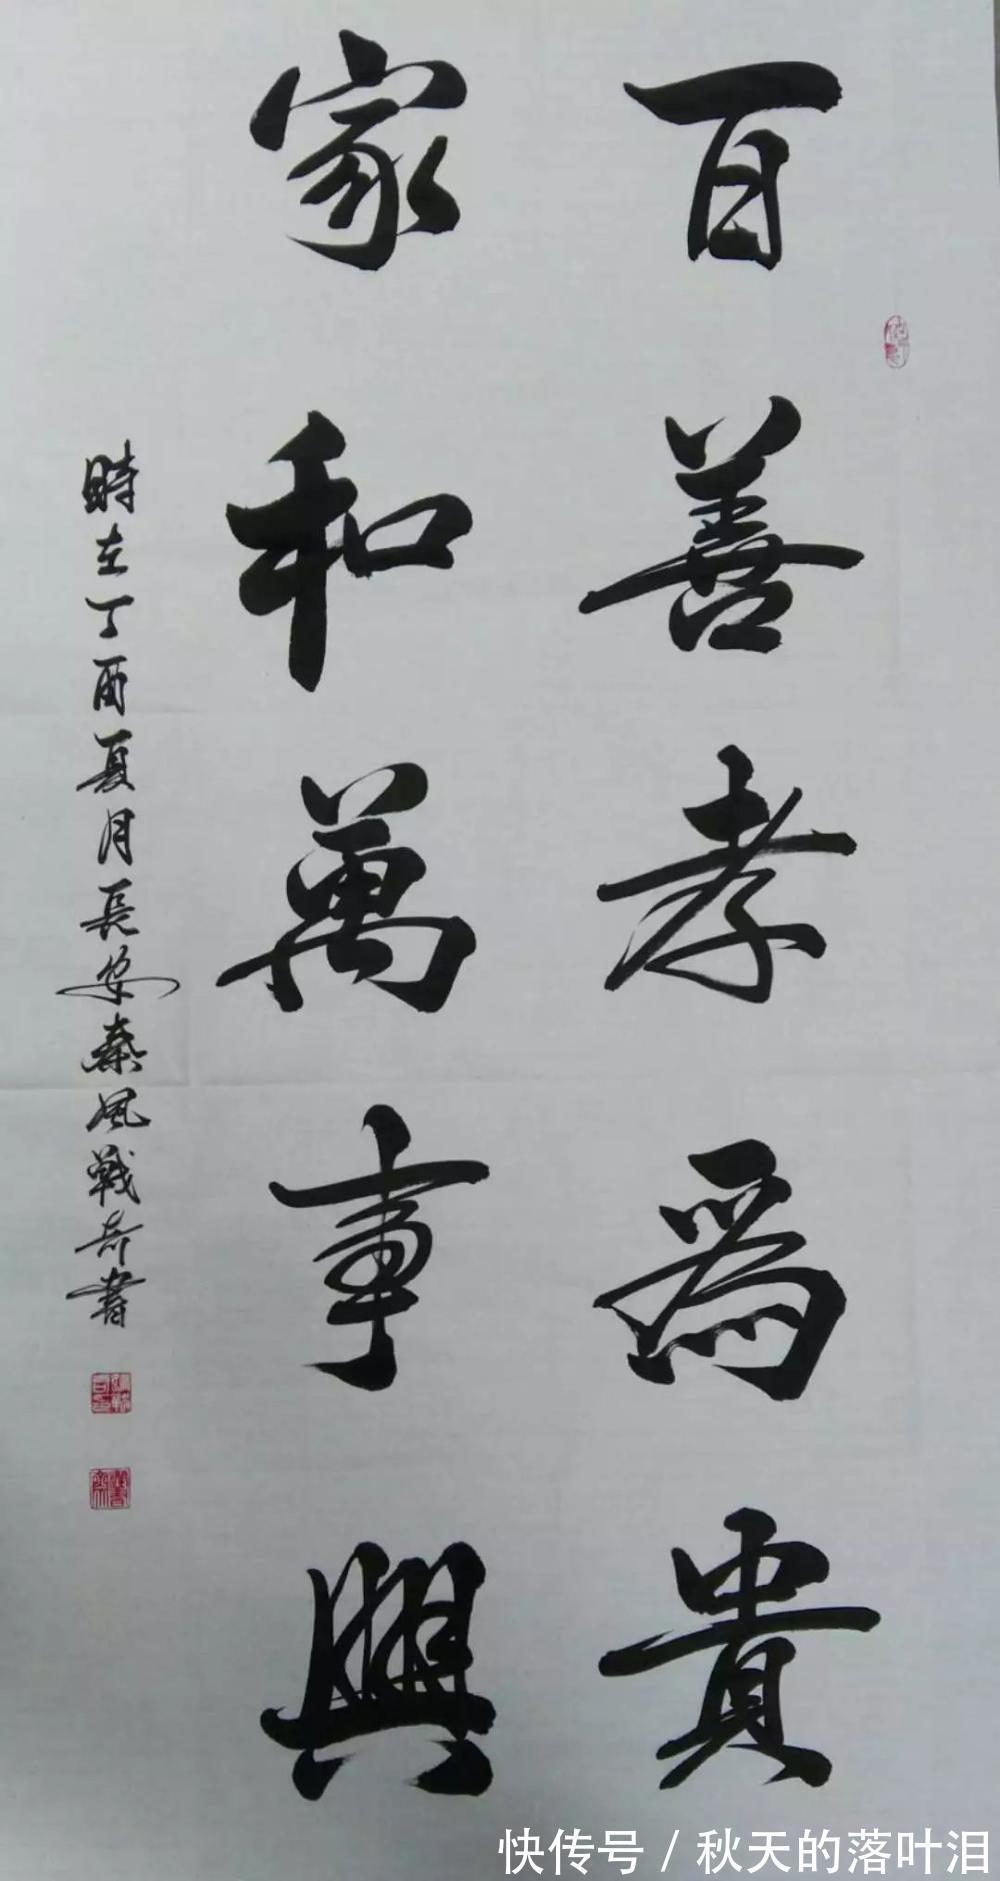 百善孝爲貴
家和萬事興
時在丁酉夏月長安秦風戰奇書
快传号 / 秋天的落叶泪